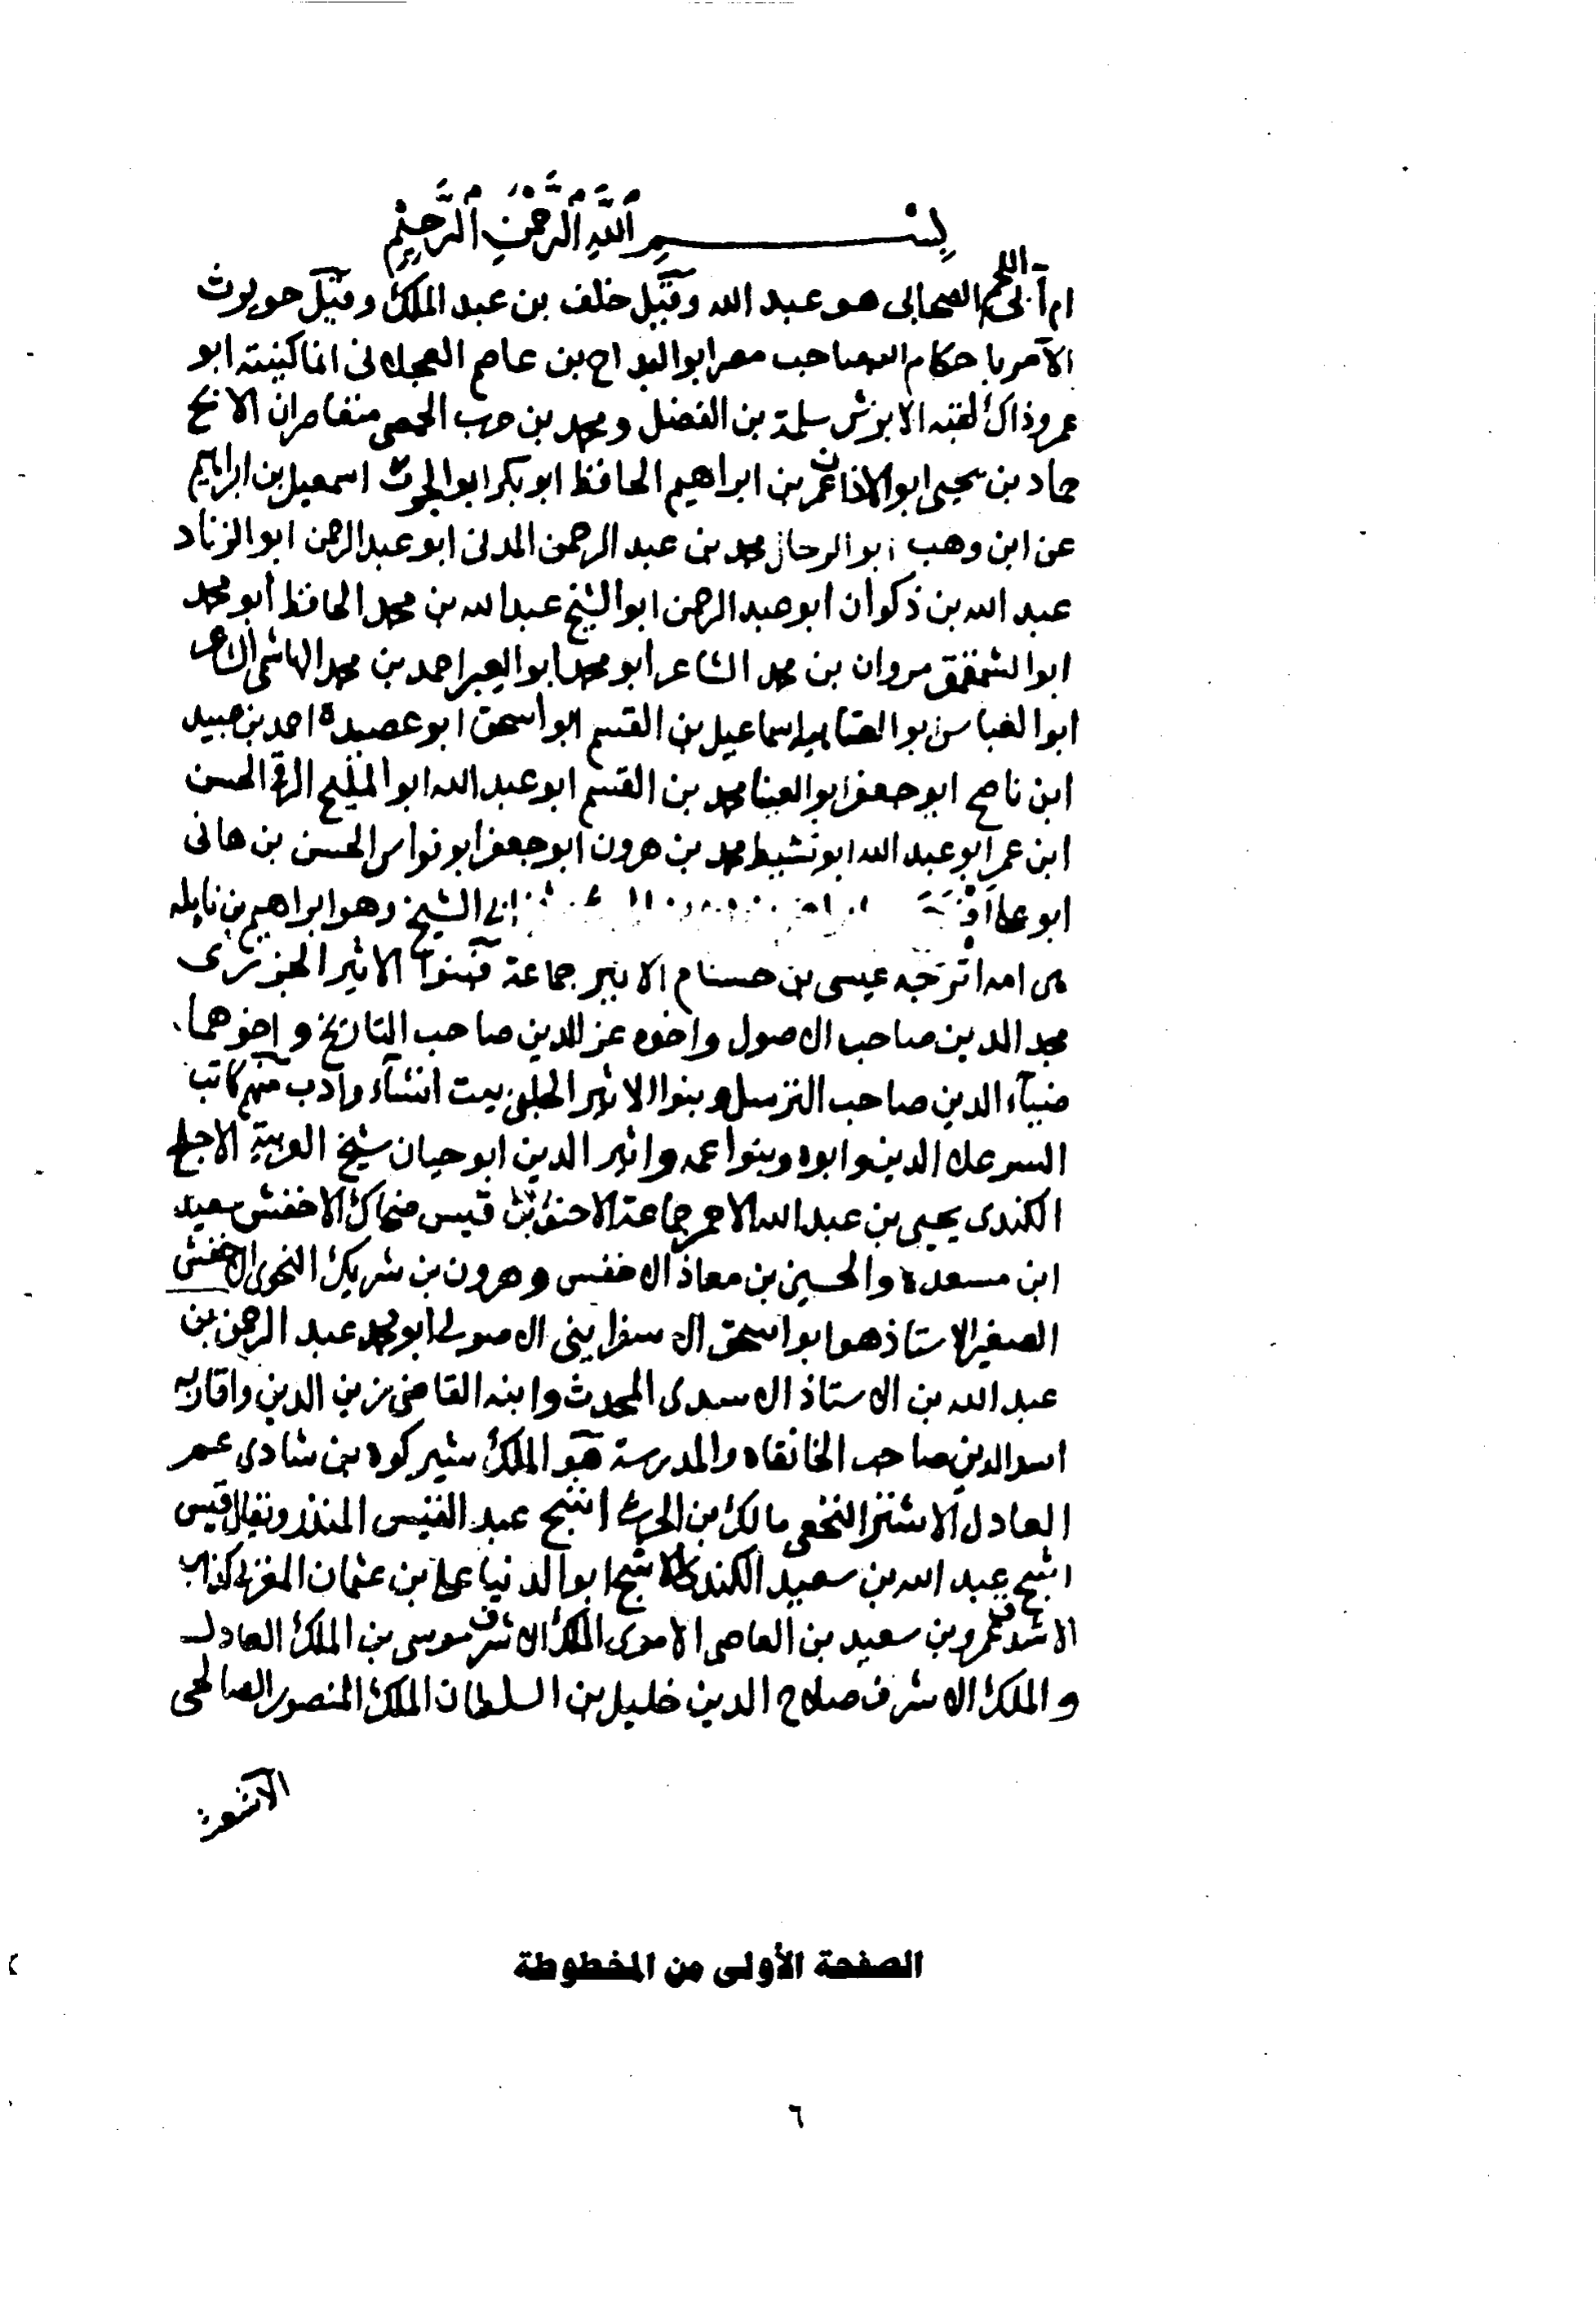 بِسْمِ اللَّهِ الرَّحْمٰنِ الرَّحِيْمِ
آبى اللحم الصحابى هو عبد الله وقيل خلف بن عبد الملك وقيل حويرث
الآمر باحكام الله صاحب مصر ابو البداح بن عاصم العجلانى انما كنيته ابو
عمرو وذاك لقبه الابرش سلمة بن الفضل ومحمد بن حرب الحمصى متعاصران الابح
حماد بن يحيى ابو الاذان عمر بن ابراهيم الحافظ ابو بكر اسمعيل بن ابراهيم
عن ابن وهب ابو الرحال محمد بن عبد الرحمن المدنى ابو عبد الرحمن ابو الزناد
عبد الله بن ذكوان ابو عبد الرحمن ابو الشيخ عبد الله بن محمد الحافظ أبو محمد
ابو الشمقمق مروان بن محمد الشاعر ابو محمد ابو العبر احمد بن محمد الهاشمى الشاعر
ابو العباس ابو العتاهيه اسماعيل بن القسم ابو اسحق ابو عصيدة احمد بن عبيد
ابن ناصح ابو جعفر ابو العينا محمد بن القسم ابو عبد الله ابو المليح الرقى الحسن
ابن عمر ابو عبد الله ابو نشيط محمد بن هرون ابو جعفر ابو نواس الحسن بن هانى
ابو على الشيخ وهو ابراهيم بن نايله
عيسى بن خشنام الاثير جماعة فبنوا الاثير الجزرى
مجد الدين صاحب الاصول واخوه عز الدين صاحب التاريخ واخوهما
ضياء الدين صاحب الترسل وبنوا الاثير الحلبى بيت انشآء وادب منهم كاتب
السر علاء الدين وابوه وبنوا عمه واثير الدين ابو حيان شيخ العربية الاجلح
الكندى يحيى بن عبد الله الاحمر جماعة الاحنف بن قيس ضحاك الاخفش سعيد
ابن مسعدة والحسين بن معاذ الاخفش وهرون بن شريك النحوى الاخفش
الصغير الاستاذ هو ابو اسحق الاسفراينى الاصولى ابو محمد عبد الرحمن بن
عبد الله بن الاستاذ الاسدى المحدث وابنه القاضى زين الدين واقاربه
اسد الدين صاحب الخانقاه والمدرسة هو الملك شيركوه بن شادى عم
العادل الاشتر النخعى مالك بن الحرث اشج عبد القيس المنذر ويقال قيس
اشج عبد الله بن سعيد الكندى الاشج ابو الدنيا على بن عثمان المغربى كذاب
الاشدق عمرو بن سعيد بن العاصى الاموى الملك الاشرف موسى بن الملك العادل
و الملك الاشرف صلاح الدين خليل بن السلطان الملك المنصور الصالحى
الصفحة الأولى من المخطوطة
٦